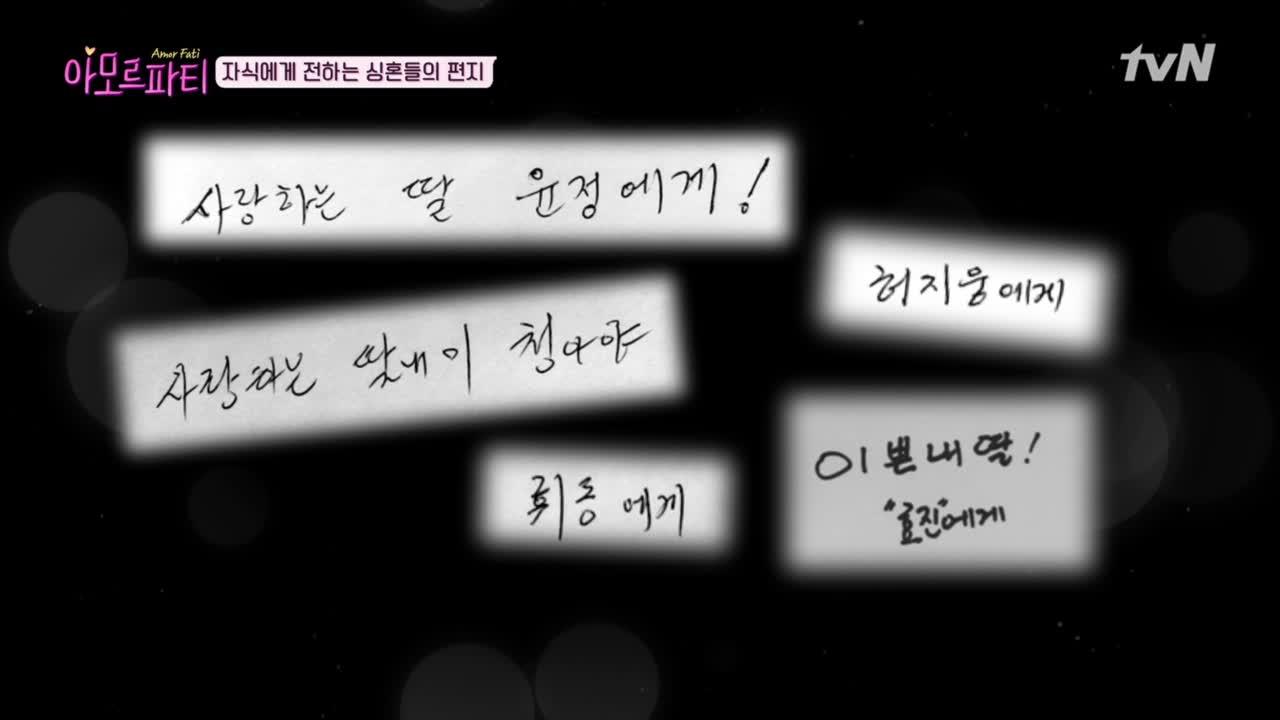 Amor Fati
아모르파티
자식에게 전하는 싱혼들의 편지
tvN
사랑하는 딸 윤정에게!
허지웅에게
사랑하는 딸내이 청아야
휘동에게
이쁜 내 딸!
"효진"에게